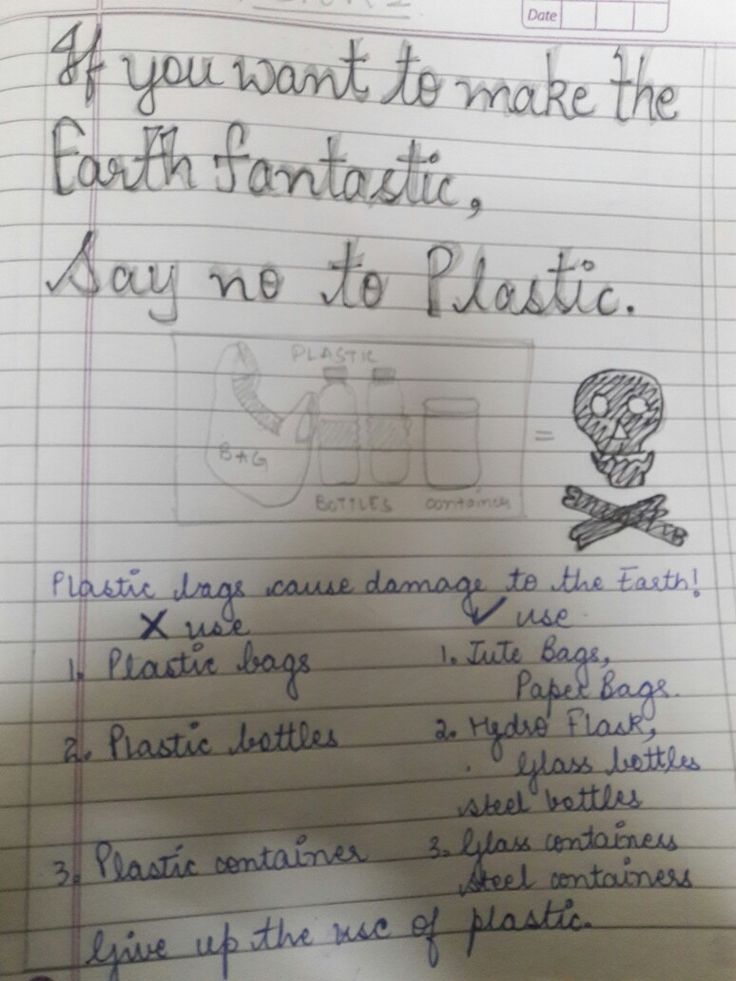 Date
If you want to make the
Earth fantastic,
Say no to Plastic.
PLASTIC
BAG
BOTTLES container
=
Plastic bags cause damage to the Earth!
X use ✓ use
1. Plastic bags 1. Jute Bags,
Paper Bags.
2. Plastic bottles 2. Hydro Flask,
Glass bottles
steel bottles
3. Plastic container 3. Glass containers
steel containers
Give up the use of plastic.